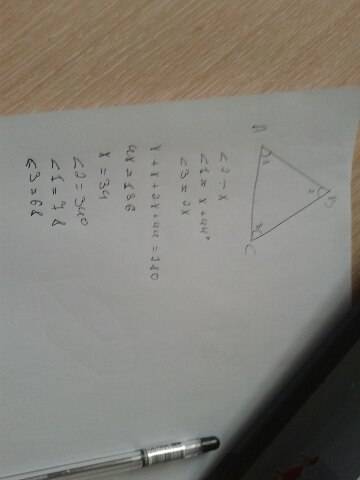 A
B
C
1
2
3
∠2 - x
∠1 = x + 44°
∠3 = 2x
x + x + 2x + 44 = 180
4x = 136
x = 34
∠2 = 340
∠1 = 78
∠3 = 68